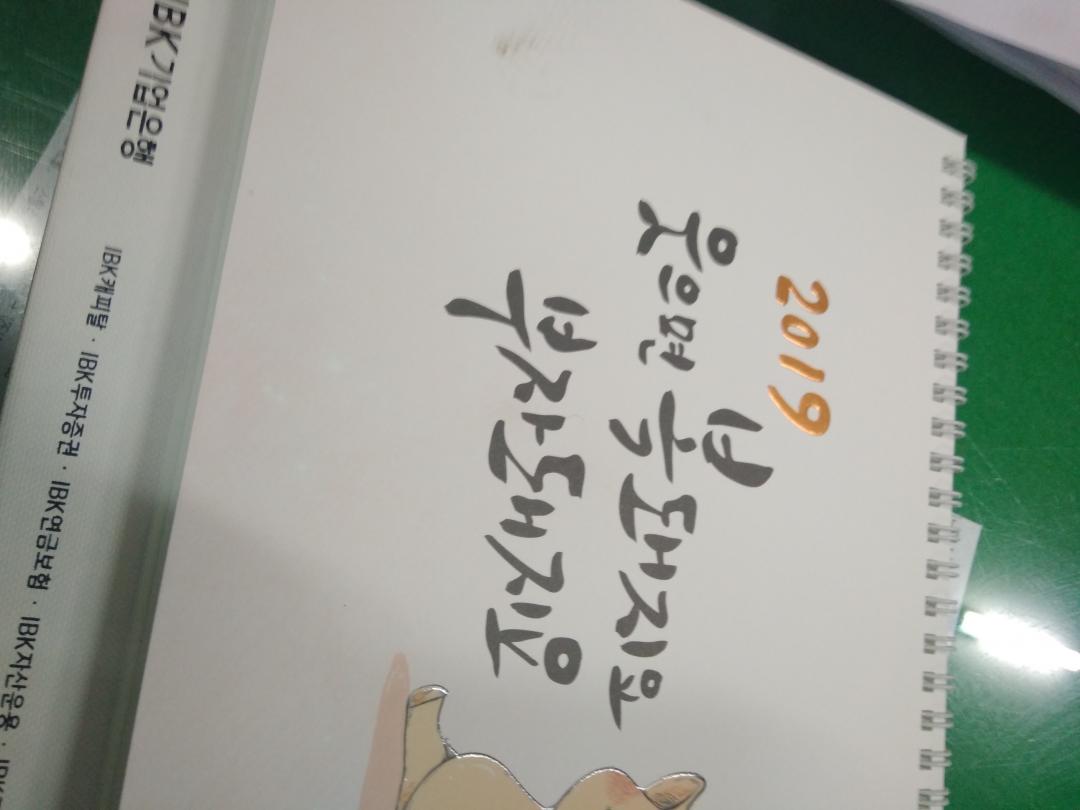 2019
웃으면 복돼지요
부자돼지요
IBK기업은행
IBK캐피탈 · IBK투자증권 · IBK연금보험 · IBK자산운용 ·